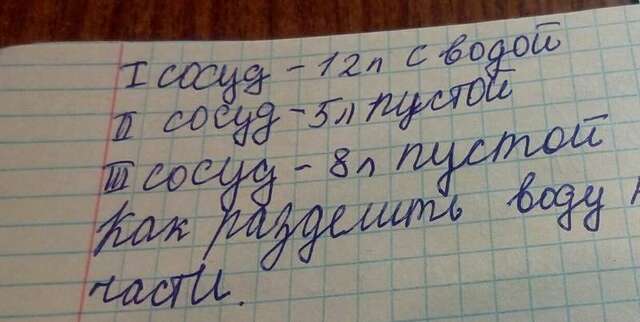 I сосуд - 12л с водой
II сосуд - 5л пустой
III сосуд - 8л пустой
Как разделить воду
части.